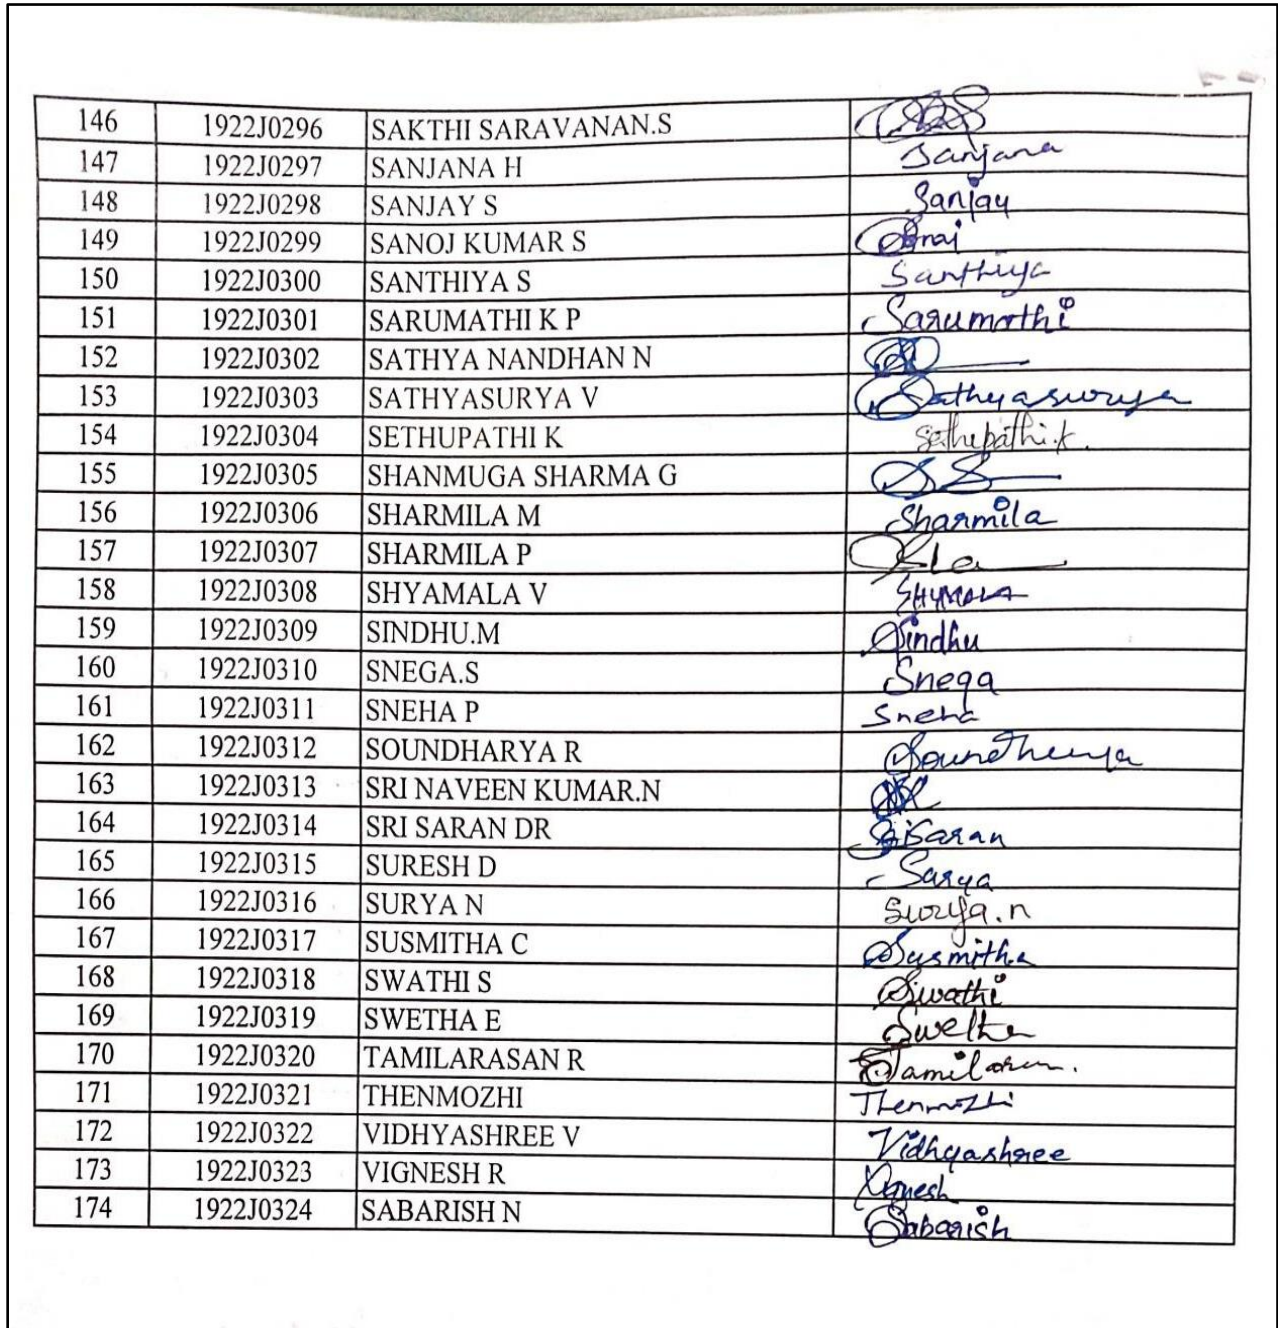 146 1922J0296 SAKTHI SARAVANAN.S
147 1922J0297 SANJANA H Sanjana
148 1922J0298 SANJAY S Sanjay
149 1922J0299 SANOJ KUMAR S
150 1922J0300 SANTHIYA S Santhiya
151 1922J0301 SARUMATHI K P Sarumathi
152 1922J0302 SATHYA NANDHAN N
153 1922J0303 SATHYASURYA V Sathyasurya
154 1922J0304 SETHUPATHI K Sethupathi.k.
155 1922J0305 SHANMUGA SHARMA G
156 1922J0306 SHARMILA M Sharmila
157 1922J0307 SHARMILA P
158 1922J0308 SHYAMALA V
159 1922J0309 SINDHU.M Sindhu
160 1922J0310 SNEGA.S Snega
161 1922J0311 SNEHA P Sneha
162 1922J0312 SOUNDHARYA R
163 1922J0313 SRI NAVEEN KUMAR.N
164 1922J0314 SRI SARAN DR SriSaran
165 1922J0315 SURESH D Sarya
166 1922J0316 SURYA N Surya.n
167 1922J0317 SUSMITHA C Susmitha
168 1922J0318 SWATHI S Swathi
169 1922J0319 SWETHA E Swetha
170 1922J0320 TAMILARASAN R
171 1922J0321 THENMOZHI Thenmozhi
172 1922J0322 VIDHYASHREE V Vidhyashree
173 1922J0323 VIGNESH R Vignesh
174 1922J0324 SABARISH N Sabarish